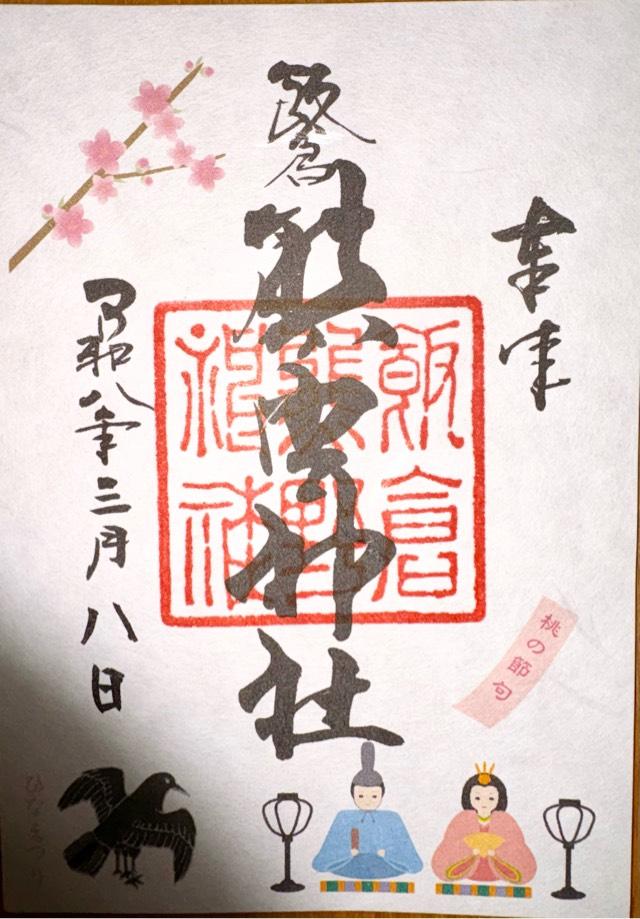 奉拝
飯倉
熊野神社
飯倉
熊野
神社
令和八年三月八日
桃の節句
ひなまつり